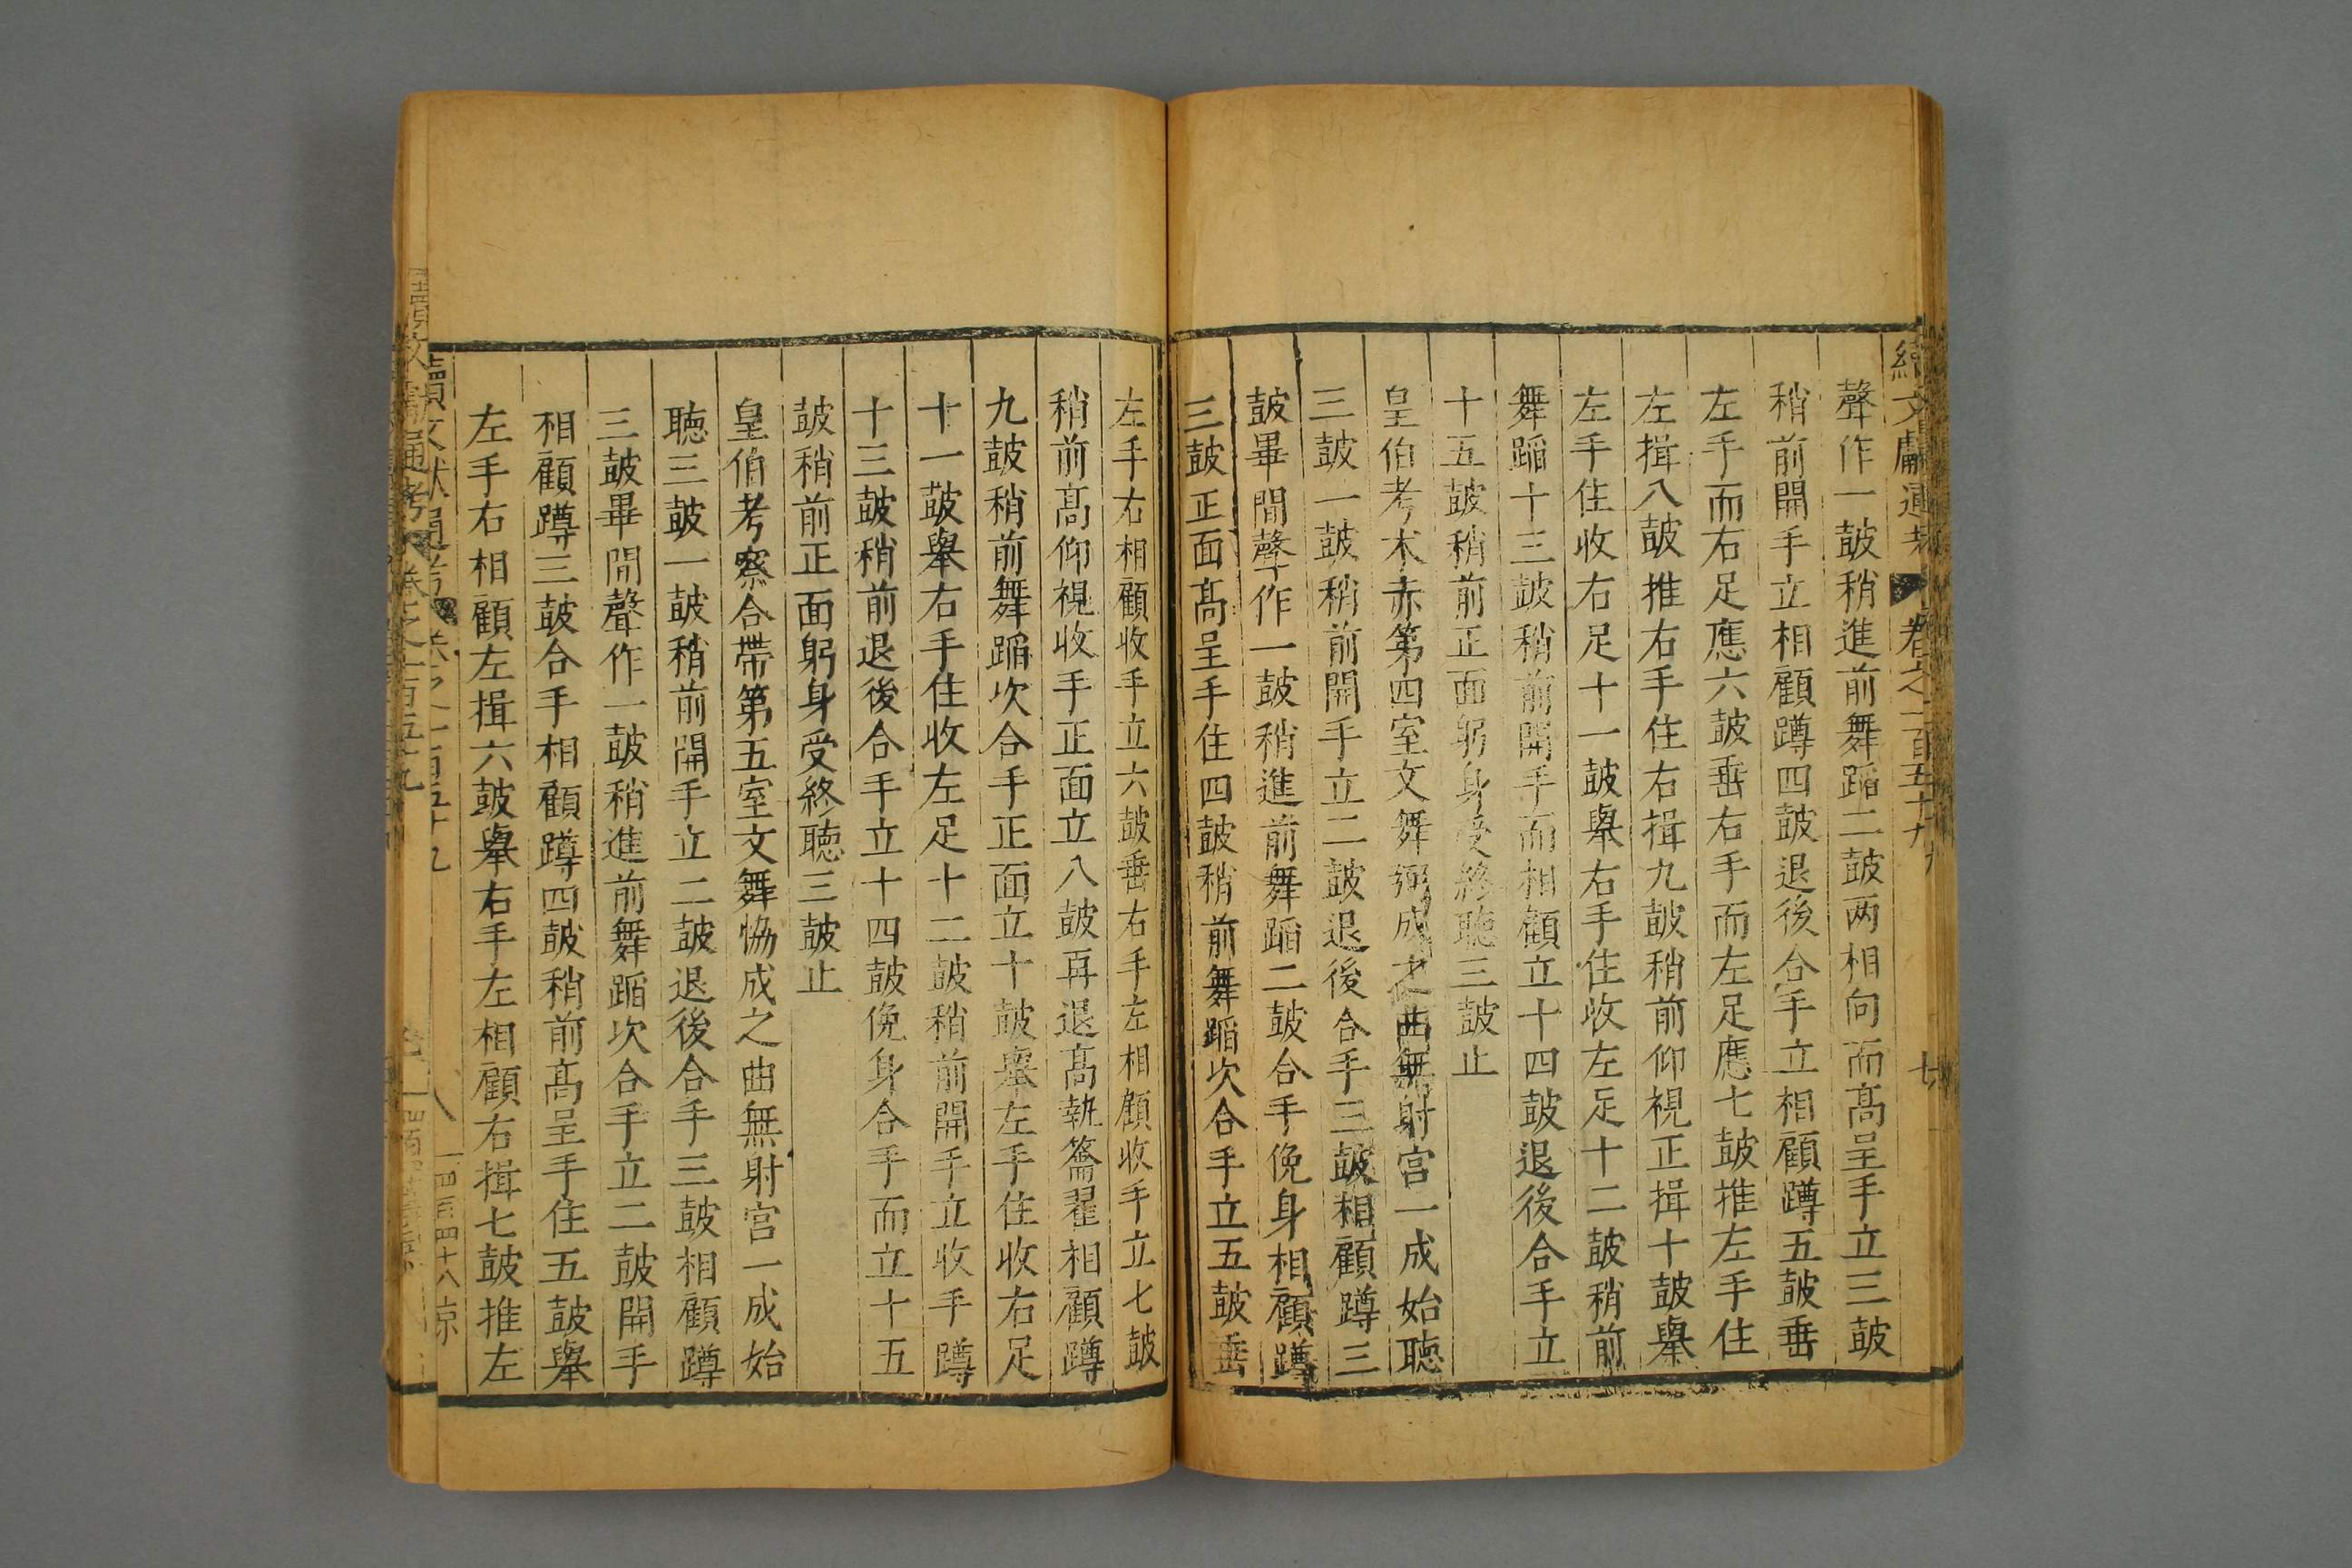 聲作一皷稍進前舞蹈二皷两相向而高呈手立三皷
稍前開手立相顧蹲四皷退後合手立相顧蹲五皷垂
左手而右足應六皷垂右手而左足應七皷推左手住
左揖八皷推右手住右揖九皷稍前仰視正揖十皷舉
左手住收右足十一皷舉右手住收左足十二皷稍前
舞蹈十三皷稍前開手而相顧立十四皷退後合手立
十五皷稍前正面躬身受終聽三皷止
皇伯考木赤第四室文舞弼成之曲無射宫一成始聽
三皷一皷稍前開手立二皷退後合手三皷相顧蹲三
皷畢間聲作一皷稍進前舞蹈二皷合手俛身相顧蹲
三皷正面高呈手住四皷稍前舞蹈次合手立五皷垂
左手右相顧收手立六皷垂右手左相顧收手立七皷
稍前高仰視收手正面立八皷再退高執籥翟相顧蹲
九皷稍前舞蹈次合手正面立十皷舉左手住收右足
十一皷舉右手住收左足十二皷稍前開手立收手蹲
十三皷稍前退後合手立十四皷俛身合手而立十五
皷稍前正面躬身受終聽三皷止
皇伯考察合帶第五室文舞恊成之曲無射宫一成始
聽三皷一皷稍前開手立二皷退後合手三皷相顧蹲
三皷畢間聲作一皷稍進前舞蹈次合手立二皷開手
相顧蹲三皷合手相顧蹲四皷稍前高呈手住五皷舉
左手右相顧左揖六皷舉右手左相顧右揖七皷推左